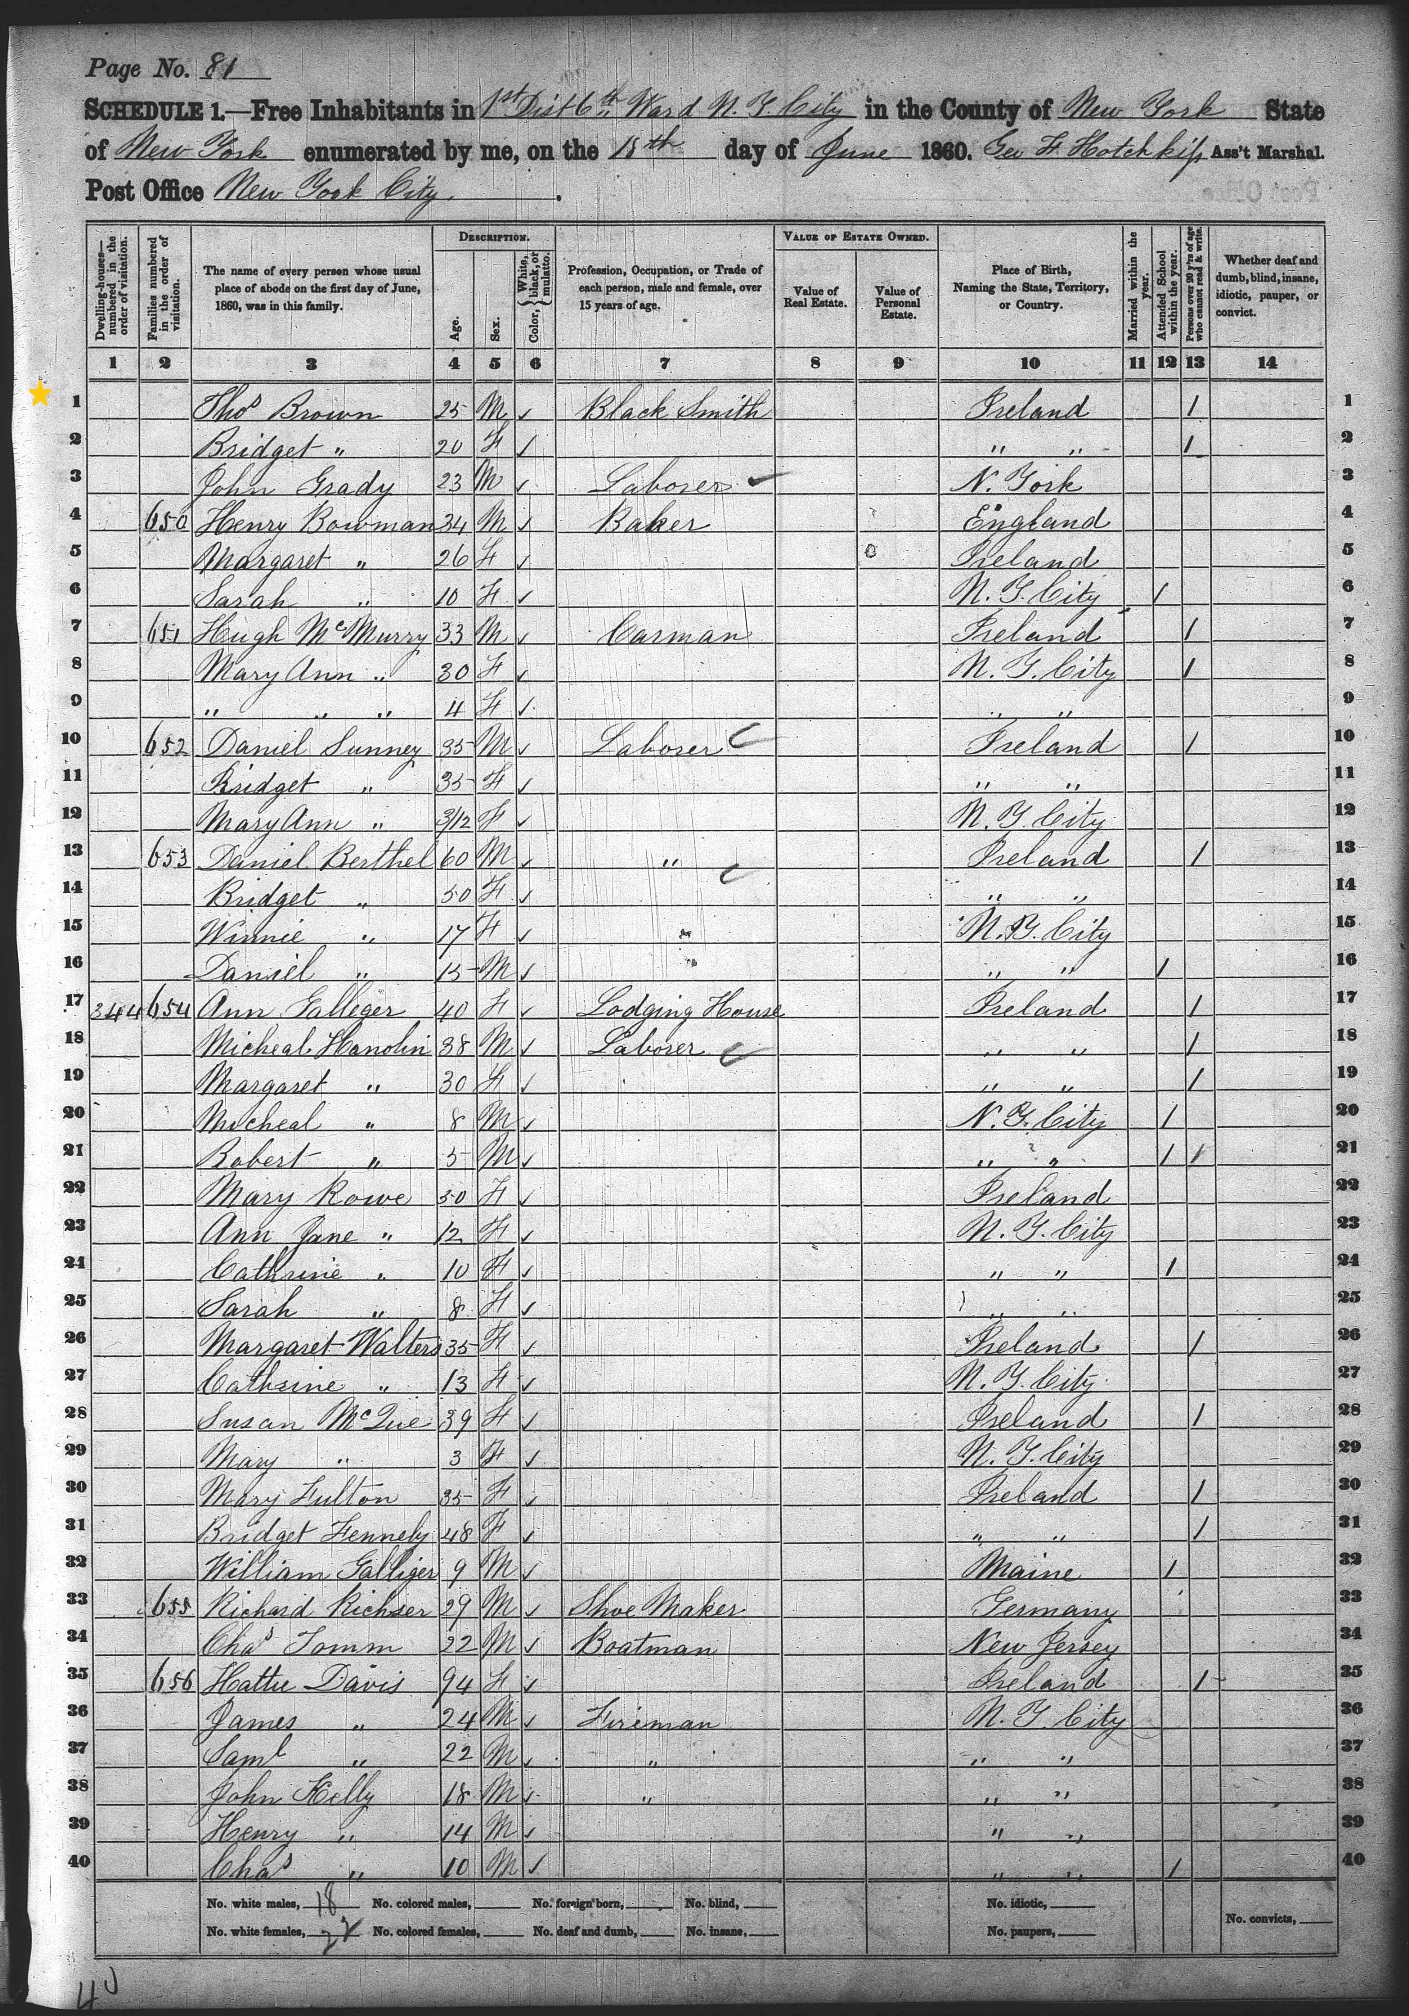 Page No. 81
SCHEDULE 1.—Free Inhabitants in 1st Dist 6th Ward N. Y. City in the County of New York State
of New York enumerated by me, on the 18th day of June 1860. Geo F. Hotchkiss Ass't Marshal.
Post Office New York City.
Dwelling-houses—numbered in the order of visitation. Families numbered in the order of visitation. The name of every person whose usual place of abode on the first day of June, 1860, was in this family. DESCRIPTION. Age. Sex. Color, {White, black, or mulatto. Profession, Occupation, or Trade of each person, male and female, over 15 years of age. VALUE OF ESTATE OWNED. Value of Real Estate. Value of Personal Estate. Place of Birth, Naming the State, Territory, or Country. Married within the year. Attended School within the year. Persons over 20 y'rs of age who cannot read & write. Whether deaf and dumb, blind, insane, idiotic, pauper, or convict.
1 2 3 4 5 6 7 8 9 10 11 12 13 14
1 Thos Brown 25 M ✓ Black Smith Ireland / 1
2 Bridget " 20 F ✓ " " / 2
3 John Grady 23 M ✓ Laborer ✓ N. York 3
4 650 Henry Bowman 34 M ✓ Baker England 4
5 Margaret " 26 F ✓ 0 Ireland 5
6 Sarah " 10 F ✓ N. Y. City / 6
7 651 Hugh McMurry 33 M ✓ Carman Ireland / 7
8 Mary Ann " 30 F ✓ N. Y. City / 8
9 " " " 4 F ✓ " " 9
10 652 Daniel Sunney 35 M ✓ Laborer Ireland / 10
11 Bridget " 35 F ✓ " " 11
12 Mary Ann " 3/12 F ✓ N. Y. City 12
13 653 Daniel Berthel 60 M ✓ " Ireland / 13
14 Bridget " 50 F ✓ " " 14
15 Winnie " 17 F ✓ N. Y. City 15
16 Daniel " 15 M ✓ " " / 16
17 344 654 Ann Galleger 40 F ✓ Lodging House Ireland / 17
18 Micheal Hanolin 38 M ✓ Laborer " " / 18
19 Margaret " 30 F ✓ " " / 19
20 Micheal " 8 M ✓ N. Y. City / 20
21 Robert " 5 M ✓ " " / / 21
22 Mary Rowe 50 F ✓ Ireland 22
23 Ann Jane " 12 F ✓ N. Y. City 23
24 Cathrine " 10 F ✓ " " / 24
25 Sarah " 8 F ✓ " " 25
26 Margaret Walters 35 F ✓ Ireland / 26
27 Cathrine " 13 F ✓ N. Y. City 27
28 Susan McQue 39 F ✓ Ireland / 28
29 Mary " 3 F ✓ N. Y. City 29
30 Mary Fulton 35 F ✓ Ireland / 30
31 Bridget Fennely 48 F ✓ " " / 31
32 William Galliger 9 M ✓ Maine / 32
33 655 Richard Richser 29 M ✓ Shoe Maker Germany 33
34 Chas Tomm 22 M ✓ Boatman New Jersey 34
35 656 Hattie Davis 94 F ✓ Ireland / 35
36 James " 24 M ✓ Fireman N. Y. City 36
37 Saml " 22 M ✓ " " " 37
38 John Kelly 18 M ✓ " " " 38
39 Henry " 14 M ✓ " " 39
40 Chas " 10 M ✓ " " / 40
No. white males, 18 No. colored males, No. foreign born, No. blind, No. idiotic,
No. white females, 22 No. colored females, No. deaf and dumb, No. insane, No. paupers, No. convicts,
40